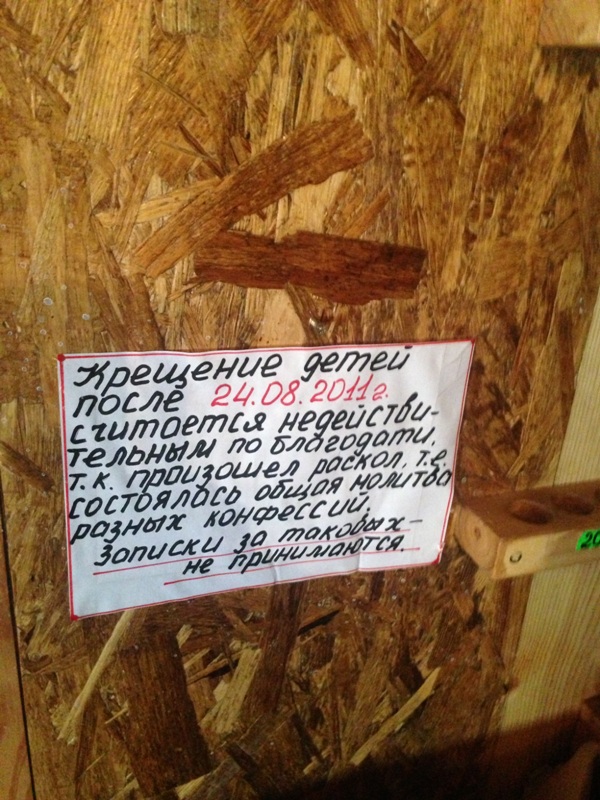 Крещение детей
после 24.08.2011г.
считается недействи-
тельным по благодати,
т.к. произошел раскол, т.е.
состоялась общая молитва
разных конфессий.
Записки за таковых –
не принимаются.
20